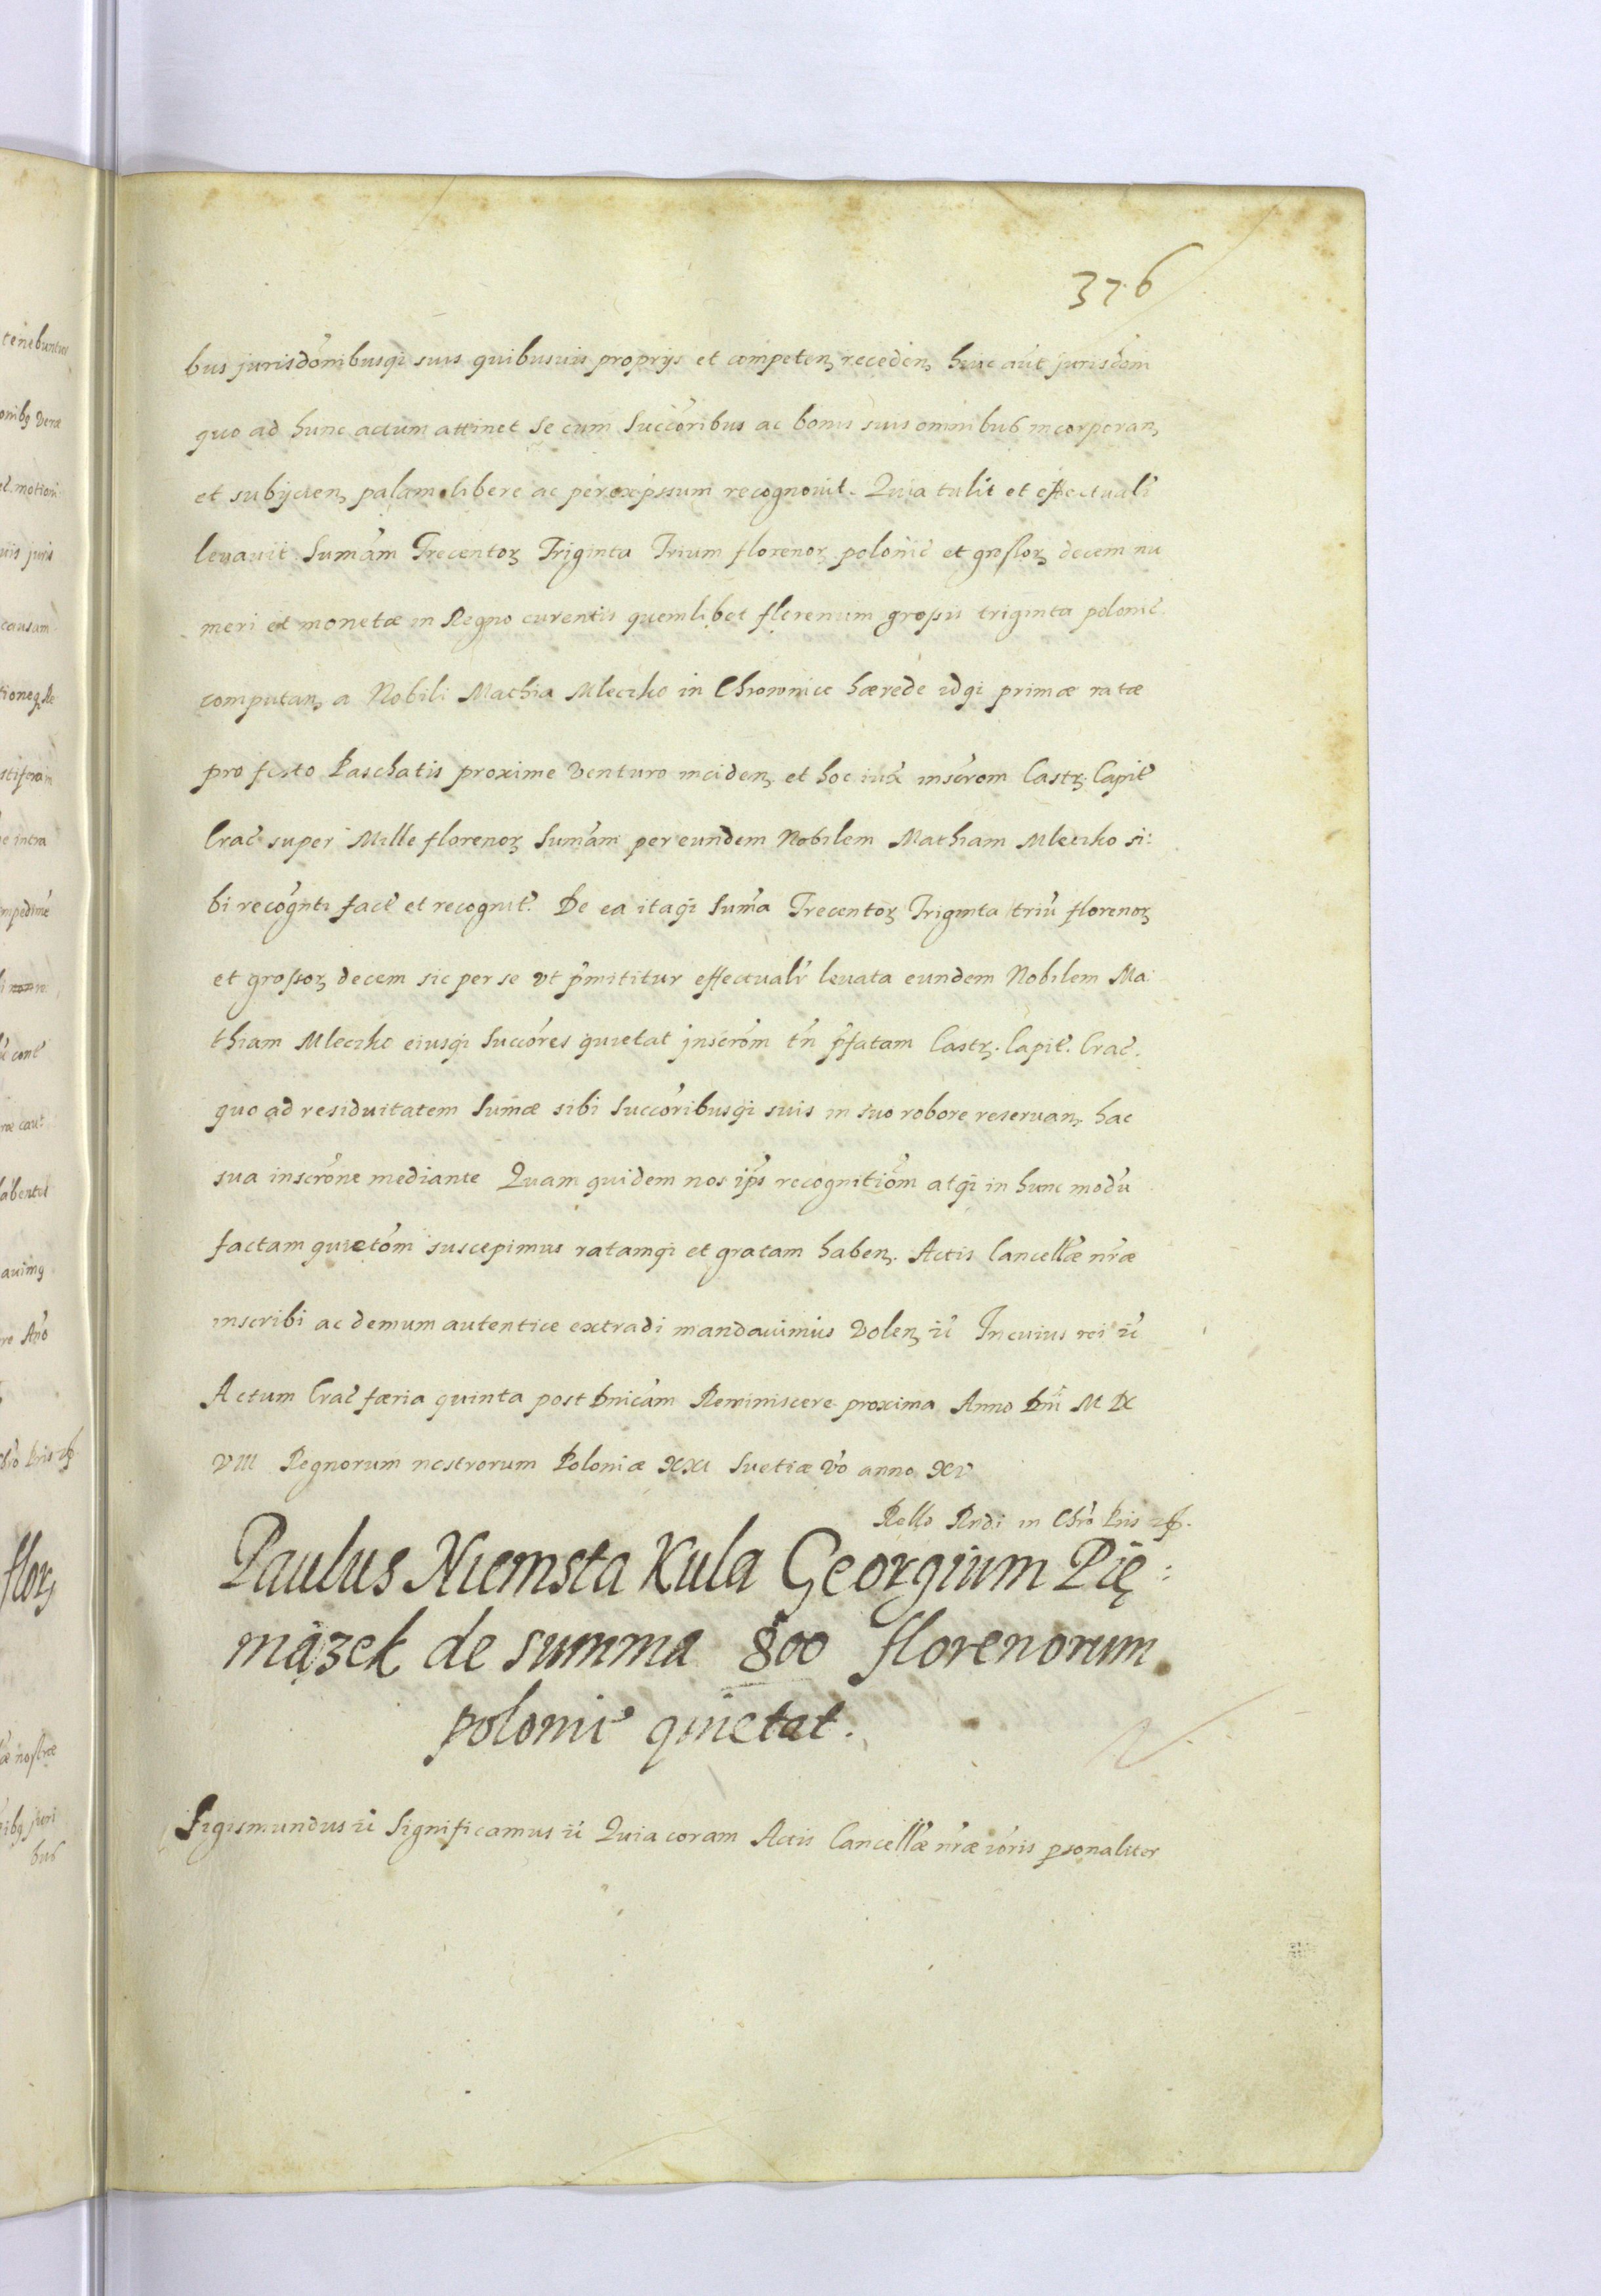 376
bus jurisdo͠nibusq; suis quibusuis proprijs et competen, receden, huic aūt jurisdo͠ni
quo ad hunc actum attinet se cum succo͠ribus ac bonis suis omnibus incorporan,
et subijcien, palam libere ac per expssum recognouit. Quia tulit et effectualr̄
leuauit Sumām Trecentoꝝ Triginta Trium florenoꝝ polonic̄ et grossoꝝ decem nu
meri et monetæ in Regno curentis quemlibet florenum grossis triginta polonic̄
computan, a Nobili Mathia Mleczko in Chronowice hærede idq; primæ ratæ
pro festo Paschatis proxime venturo inciden, et hoc iux̄ inscr̄om Castꝝ. Capit̄
Crac̄ super Mille florenoꝝ Sumām per eundem Nobilem Mathiam Mleczko si:
bi recog̅nti fact̄ et recognit̄. De ea itaq; Sum̄a Trecentoꝝ Triginta triū florenoꝝ
et grossoꝝ decem sic per se vt p̄mititur effectualr̄ leuata eundem Nobilem Ma:
thiam Mleczko eiusq; succo͠res quietat inscro͠m tn̄ p̄fatam Castꝝ. Capit̄. Crac̄.
quo ad residuitatem Sum̄æ sibi succo͠ribusq; suis in suo robore reseruan, hac
sua inscro͠ne mediante Quam quidem nos ip̄s recognitio͠m atq; in hunc modū
factam quieto͠m suscepimus ratamq; et gratam haben, Actis Cancell̄æ nr̄æ
inscribi ac demum autentice extradi mandauimus volen, zc̄ In cuius rei zc̄
Actum Crac̄ færia quinta post Dnicām Reminiscere proxima Anno Dn̄i M DC
VIII Regnorum nostrorum Poloniæ XXI Suetiæ vō anno XV
Rello Rndi in Chro Pris
Paulus Niemsta Kula Georgium Pię:
mązek de summa 800 florenorum
polonic̄ quietat.
Sigismundus zc̄ Significamus zc̄ Quia coram Actis Cancell̄æ nr̄æ io͠ris p̱sonaliter